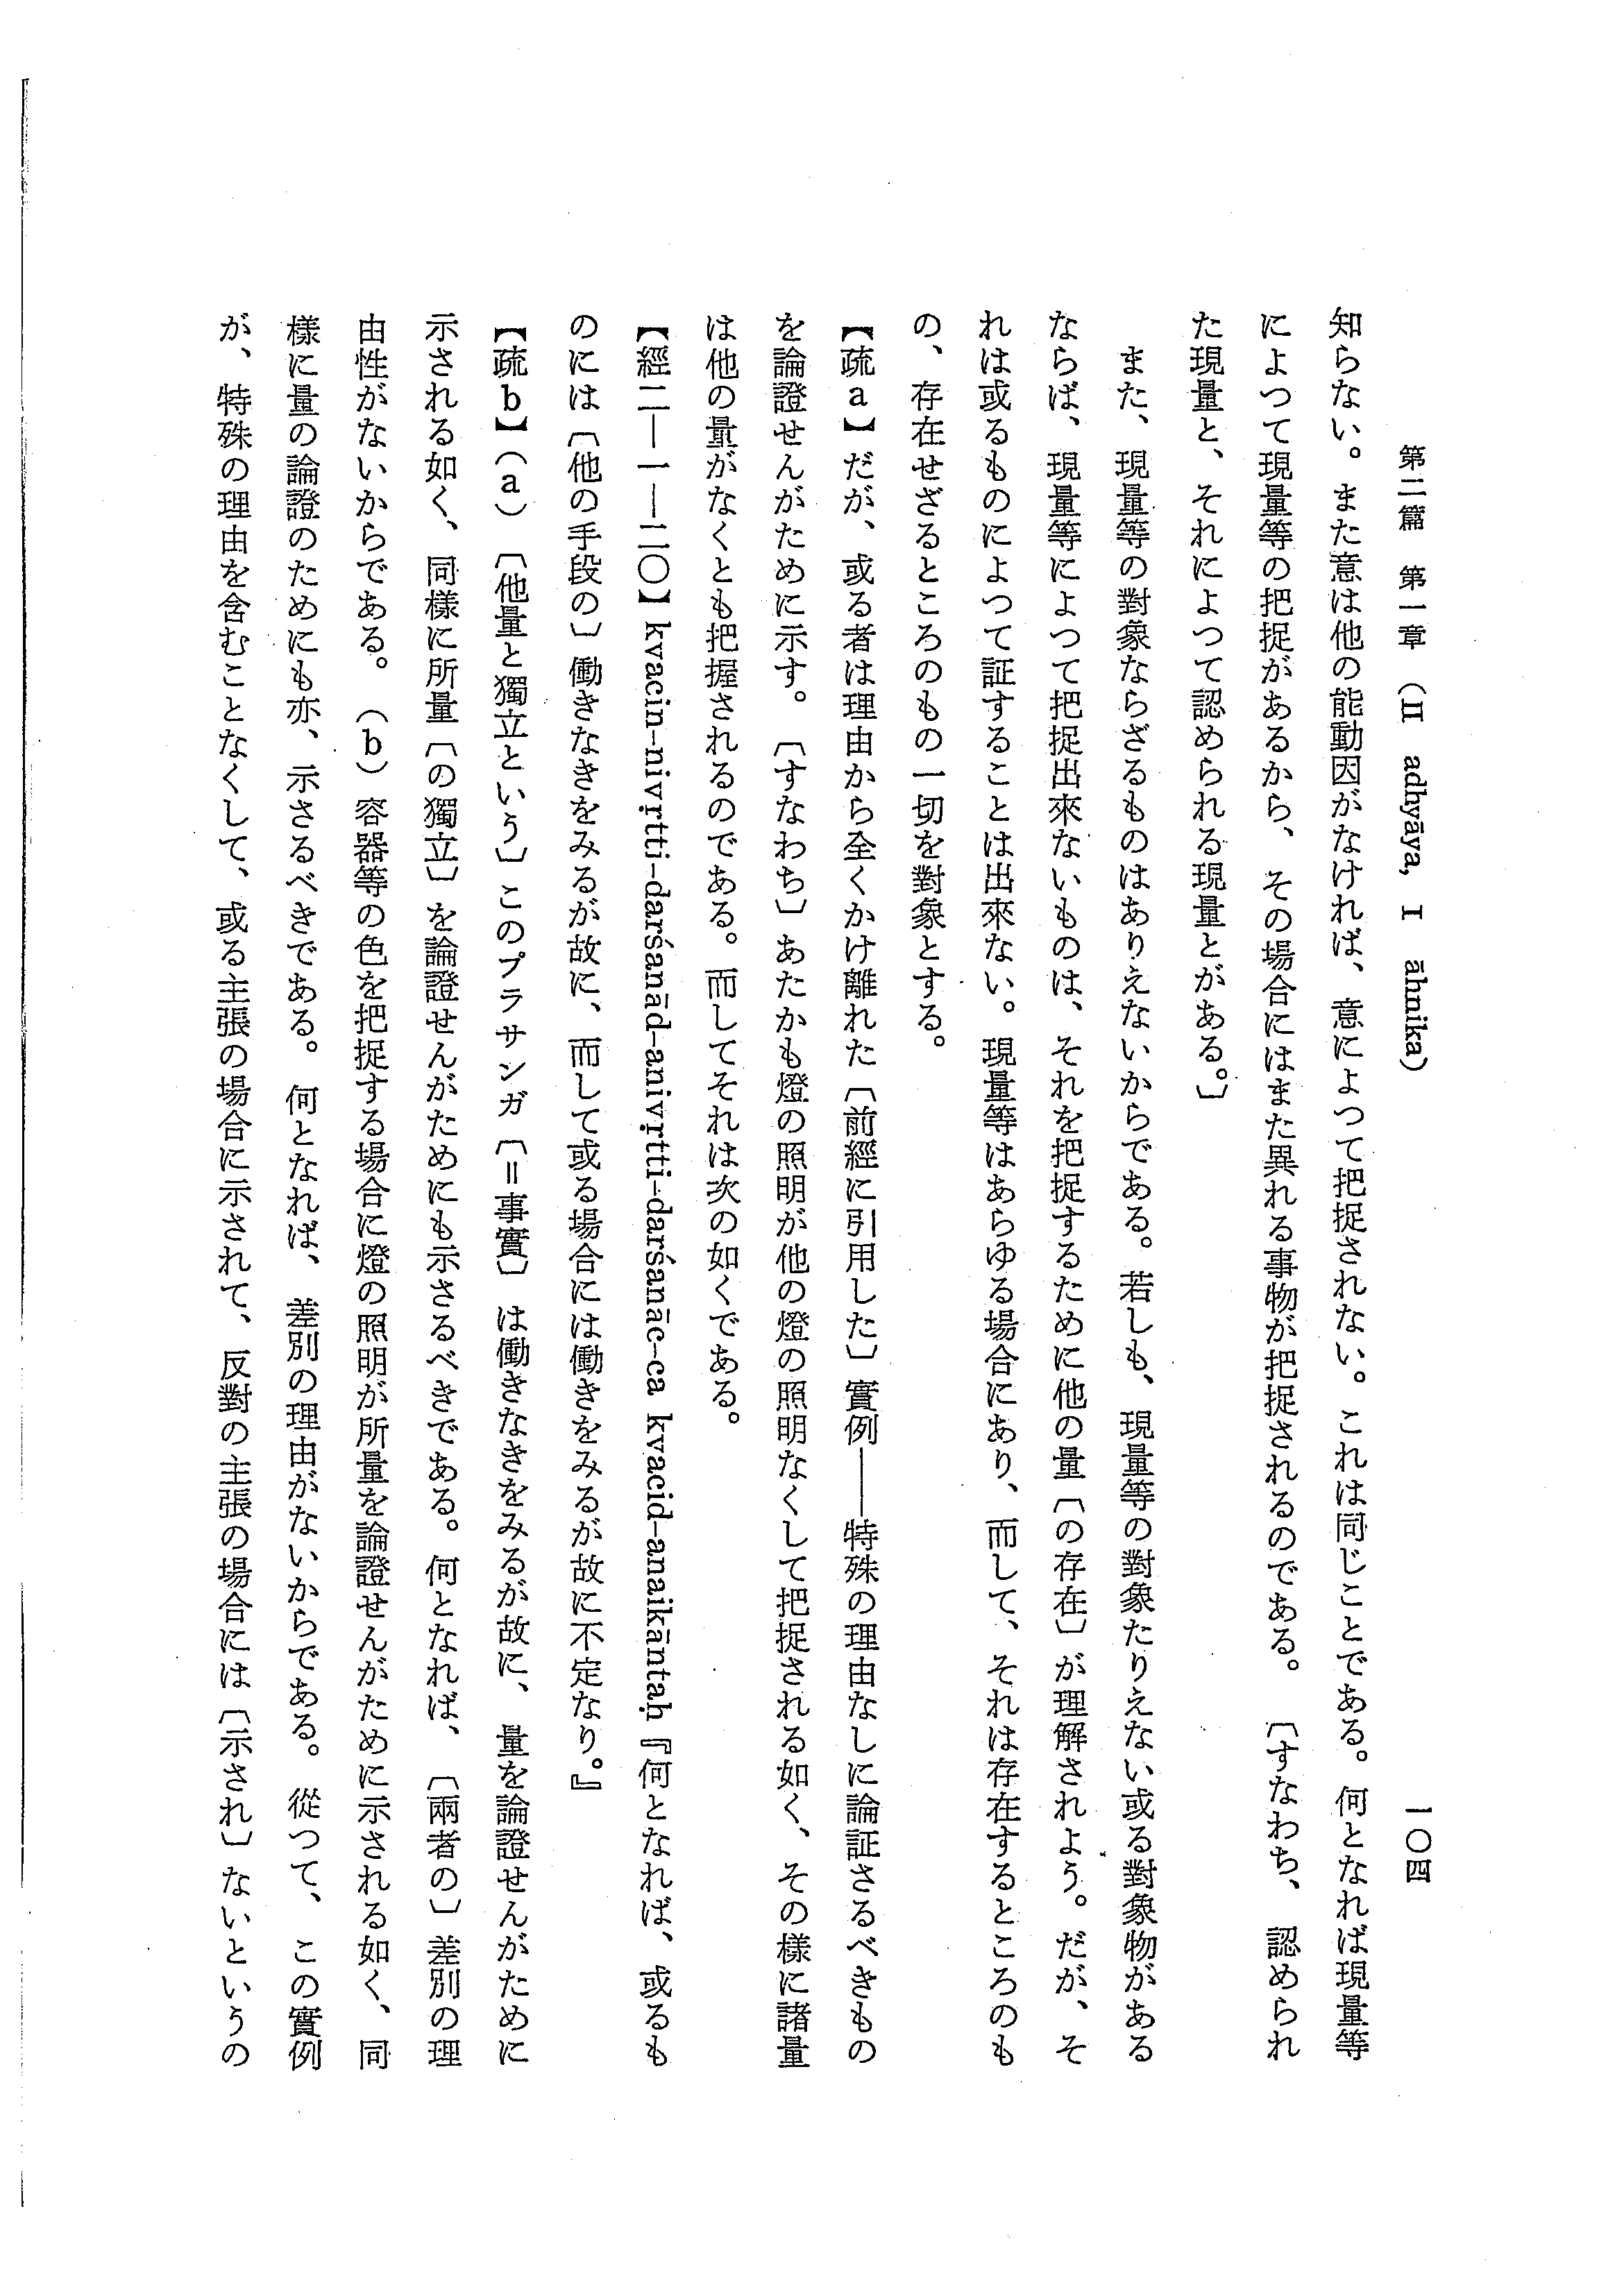 第二篇　第一章　（II adhyāya, I āhnika）　一〇四
知らない。また意は他の能動因がなければ、意によつて把捉されない。これは同じことである。何となれば現量等
によつて現量等の把捉があるから、その場合にはまた異れる事物が把捉されるのである。〔すなわち、認められ
た現量と、それによつて認められる現量とがある。〕
　また、現量等の對象ならざるものはありえないからである。若しも、現量等の對象たりえない或る對象物がある
ならば、現量等によつて把捉出來ないものは、それを把捉するために他の量〔の存在〕が理解されよう。だが、そ
れは或るものによつて証することは出來ない。現量等はあらゆる場合にあり、而して、それは存在するところのも
の、存在せざるところのもの一切を對象とする。
【疏a】だが、或る者は理由から全くかけ離れた〔前經に引用した〕實例――特殊の理由なしに論証さるべきもの
を論證せんがために示す。〔すなわち〕あたかも燈の照明が他の燈の照明なくして把捉される如く、その様に諸量
は他の量がなくとも把握されるのである。而してそれは次の如くである。
【經二―一―二〇】kvacin-nivṛtti-darśanād-anivṛtti-darśanāc-ca kvacid-anaikāntaḥ『何となれば、或るも
のには〔他の手段の〕働きなきをみるが故に、而して或る場合には働きをみるが故に不定なり。』
【疏b】（a）〔他量と獨立という〕このプラサンガ〔＝事實〕は働きなきをみるが故に、量を論證せんがために
示される如く、同様に所量〔の獨立〕を論證せんがためにも示さるべきである。何となれば、〔兩者の〕差別の理
由性がないからである。（b）容器等の色を把捉する場合に燈の照明が所量を論證せんがために示される如く、同
様に量の論證のためにも亦、示さるべきである。何となれば、差別の理由がないからである。從つて、この實例
が、特殊の理由を含むことなくして、或る主張の場合に示されて、反對の主張の場合には〔示され〕ないというの